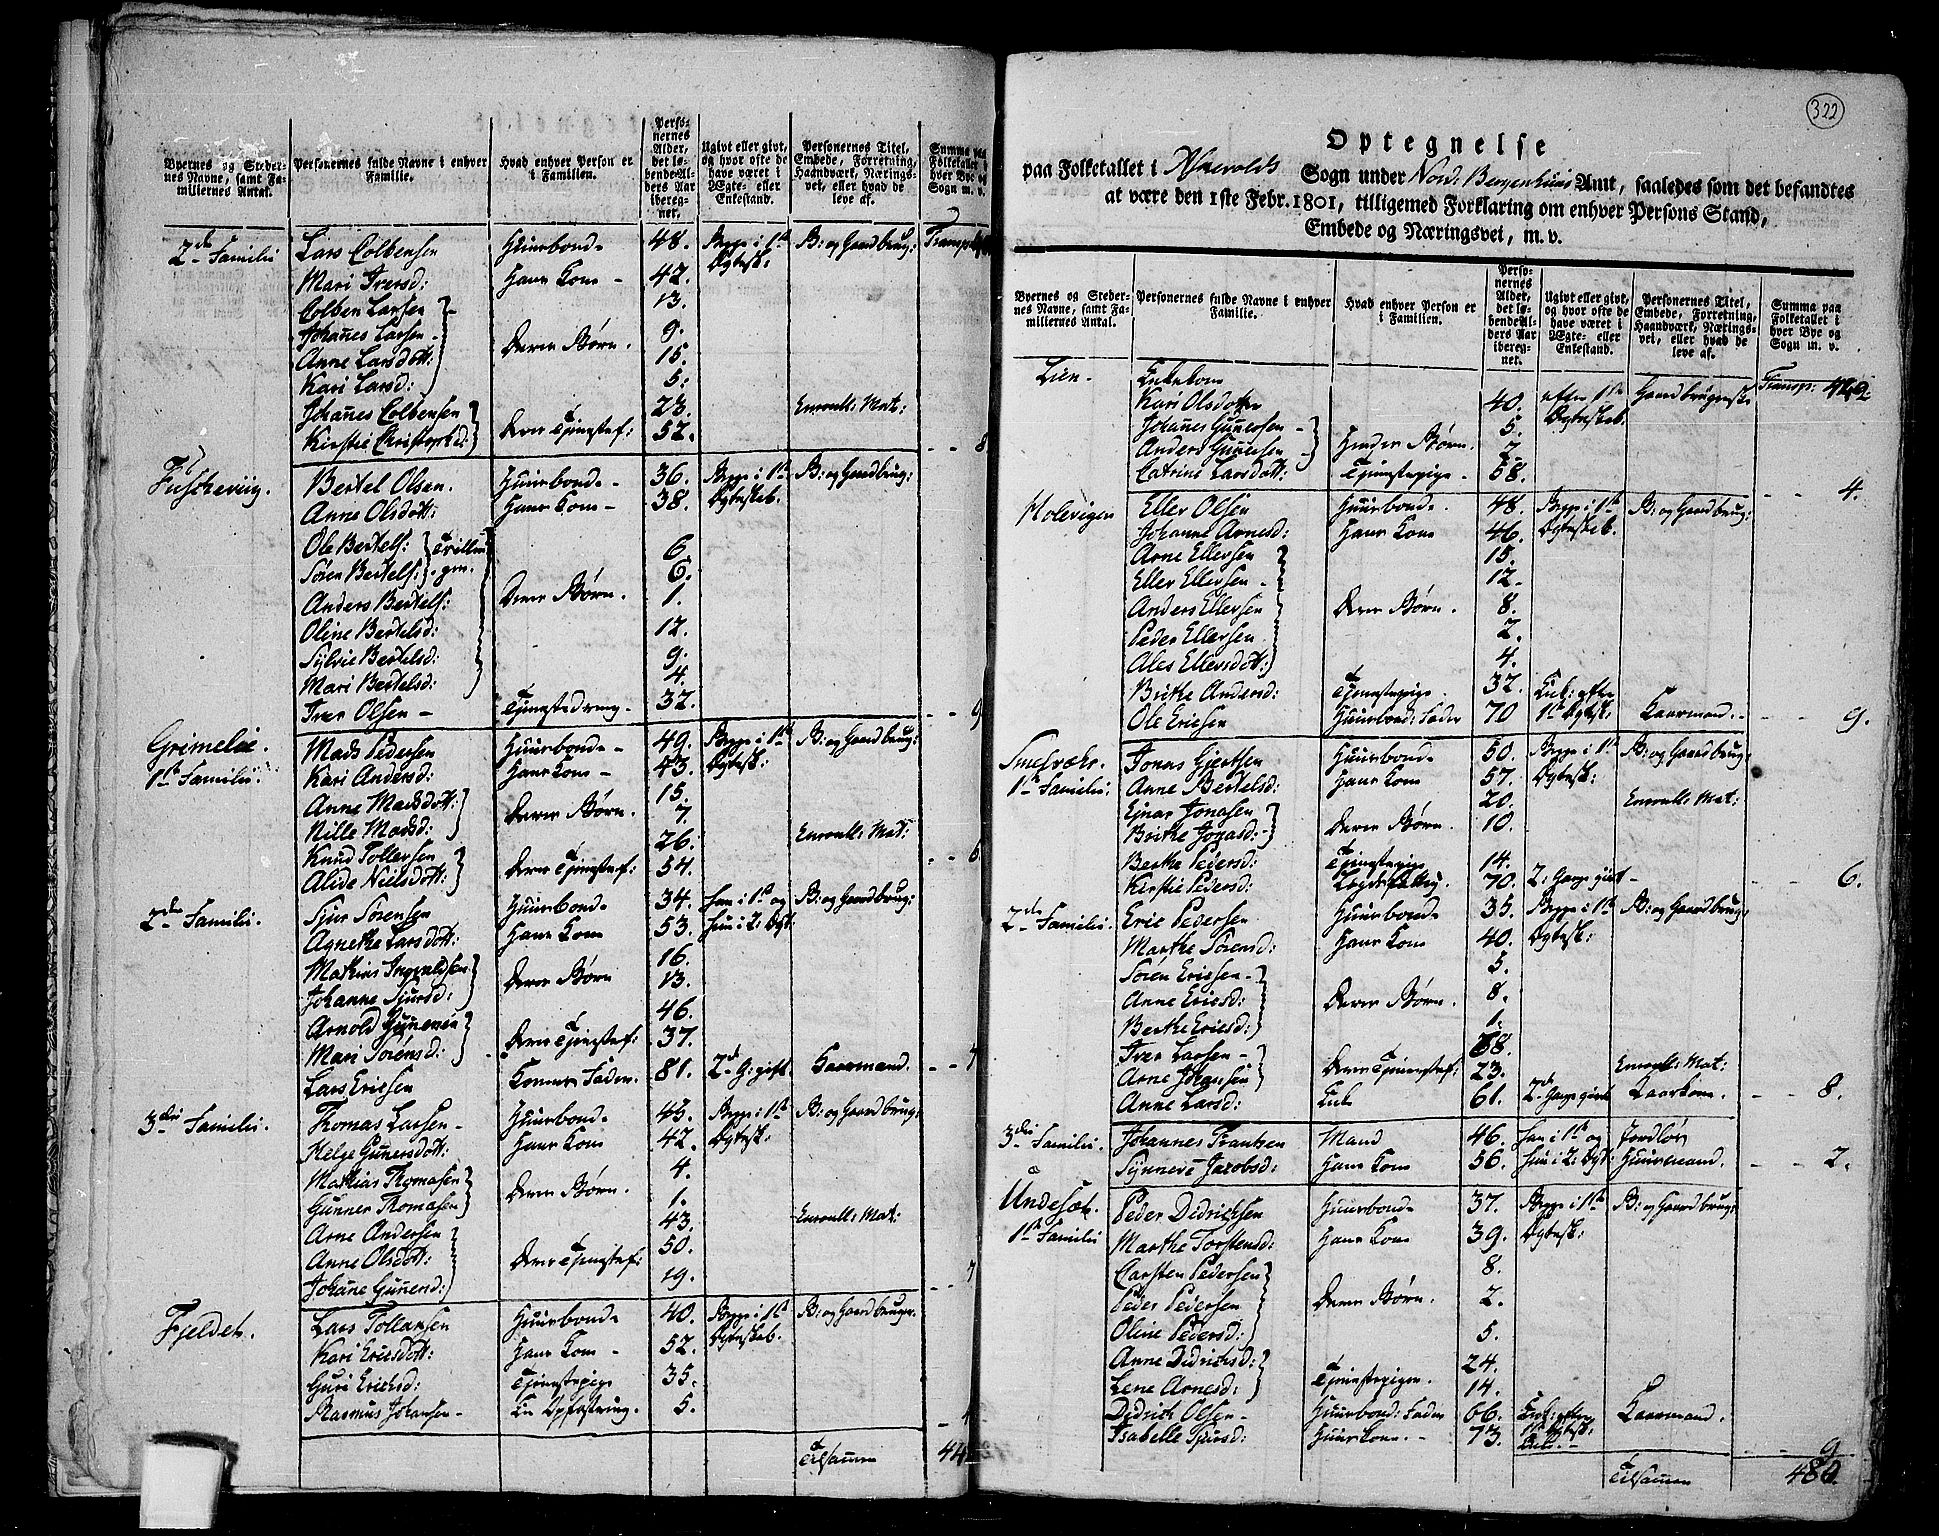 Byernes og Steder-
nes Navne, samt Fa-
miliernes Antal.
Personernes fulde Navne i enhver
Familie.
Hvad enhver Person er
i Familien.
Perso-
nernes
Alder,
det lø-
bende Al-
ders Aar
ibereg-
net.
Ugivt eller givt,
og hvor ofte de
have været i
Ægte- eller
Enkestand.
Personernes Titel,
Embede, Forretning,
Haandværk, Nærings-
vei, eller hvad de
leve af.
Summa paa
Folketallet i
hver Bye og
Sogn m. v.
2de Familie Lars Colbensen Huusbonde 48. Begge i 1ste B: og Gaardbrug:
Mari Iversd: Hans Kone 42. Ægtesk:
Colben Larsen 13.
Johannes Larsen Deres Børn. 9.
Anne Larsdott: 15.
Kari Larsd: 5.
Johannes Colbensen Deres Tjenestef: 23. Enroull: Mat:
Kirstie Christophsd: 52. 8
Bertel Olsen. Huusbonde 36. Begge i 1ste B: og Gaardbrug:
Anne Olsdott: Hans Kone 38. Ægteskab.
Ole Bertels: Tvillin- 6.
Søren Bertels: ger. 6.
Anders Bertels: Deres Børn. 1.
Oline Bertelsd: 12.
Sylvie Bertelsd: 9.
Mari Bertelsd: 4.
Iver Olsen Tjenestedreng 32. 9
Grimelie.
1ste Familie. Mads Pedersen Huusbonde 49. Begge i 1ste B: og Gaardbrug:
Kari Andersd: Hans Kone 43. Ægtesk:
Anne Madsdott: Deres Børn. 15.
Nille Madsd: 7.
Knud Tollersen Deres Tjenestef: 26. Enroull: Mat:
Alide Nielsdott: 54. 6
2den Familie. Siur Sørensen Huusbonde 34. Han i 1ste og B: og Gaardbrug:
Agnethe Larsdott: Hans Kone 53. Hun i 2: Ægt:
Mathias Ingvaldsen Deres Børn 16.
Johanne Siursd: 13.
Arnold Gunnersen Deres Tjenestef: 46.
Mari Sørensd: 37.
Lars Ericsen Konens Fader 81. 2de G: gift. Kaarmand. 7
3die Familie. Thomas Larsen Huusbonde 45. Begge i 1ste B: og Gaardbrug:
Helge Gunersdott: Hans Kone 42. Ægtesk:
Mathias Thomasen Deres Børn. 4.
Gunner Thomasen 1.
Arne Andersen 43. Enroull: Mat:
Anne Olsdott: Deres Tjenestef: 50.
Johane Gunersd: 19. 7
Fjeldet. Lars Tollarsen Huusbonde 40. Begge i 1ste B: og Gaardbruger.
Kari Ericsdott: Hans Kone 52. Ægteskab.
Guri Erichsd: Tjenestepige 35.
Rasmus Johansen En Opfostring. 5.
Tilsamen
322
Optegnelse
paa Folketallet i Sogn under Nord: Bergenhuus Amt, saaledes som det befandtes
at være den 1ste Febr. 1801, tilligemed Forklaring om enhver Persons Stand,
Embede og Næringsvei, m. v.
Byernes og Steder-
nes Navne, samt Fa-
miliernes Antal.
Personernes fulde Navne i enhver
Familie.
Hvad enhver Person er
i Familien.
Perso-
nernes
Alder,
det lø-
bende Al-
ders Aar
ibereg-
net.
Ugivt eller givt,
og hvor ofte de
have været i
Ægte- eller
Enkestand.
Personernes Titel,
Embede, Forretning,
Haandværk, Nærings-
vei, eller hvad de
leve af.
Summa paa
Folketallet i
hver Bye og
Sogn m. v.
Lien. Enkekone Transp:
Kari Olsdotter 40. efter 1ste Gaardbrugerske
Johannes Gunersen Hendes Børn. 5. Ægteskab.
Anders Gunersen 2.
Catrine Larsdott: Tjenestepige 58. 4.
Holevigen Eller Olsen Huusbonde 48. Begge i 1ste B: og Gaardbrug:
Johanne Arnesd: Hans Kone 46. Ægteskab.
Arne Ellersen 15.
Eller Ellersen 12.
Anders Ellersen Deres Børn. 8.
Peder Ellersen 2.
Ales Ellersdott: 4.
Brithe Andersd: Tjenestepige 32. Enk: efter
Ole Ericsen Huusbond: Fader 70 1ste Ægtesk: Kaarmand. 9.
1ste Familie. Jonas Gjertsen Huusbonde 50. Begge i 1ste B: og Gaardbrug:
Anne Bertelsd: Hans Kone 57. Ægtesk:
Ejnar Jonasen Deres Børn. 20. Enroull: Mat:
Brithe Jonasd: 10.
Berthe Pedersd: Tjenestepige 14.
Kirstie Pedersd: 70. 2: Gange givt 6.
2de Familie. Eric Pedersen Huusbonde 35. Begge i 1ste B: og Gaardbrug:
Marthe Sørensd: Hans Kone 40. Ægtesk:
Søren Ericsen 5.
Anne Ericsd: Deres Børn. 8.
Berthe Ericsd: 1.
Iver Larsen Deres Tjenestef: 68.
Arne Johansen 23. Enroull: Mat:
Anne Larsd: Enke 61. 2de Gange givt Kaarkone. 8.
3die Familie. Johannes Frantzen Mand 46. Han i 1ste og Jordløs
Synneve Jacobsd: Hans Kone 56. Hun i 2: Ægt: Huusmand. 2.
Undesæt.
1ste Familie Peder Didrichsen Huusbonde 37. Begge i 1ste B: og Gaardbrug:
Marthe Torstensd: Hans Kone 39. Ægtesk:
Carsten Pedersen 8.
Peder Pedersen Deres Børn. 2.
Oline Pedersd: 5.
Anne Didrichsd: Tjenestepiger. 24.
Lene Arnesd: 14.
Didrich Olsen Huusbond: Fader 66. Enk: efter Kaarmand.
Isabelle Siursd: Huuskone. 73. 9
Tilsamen 480.